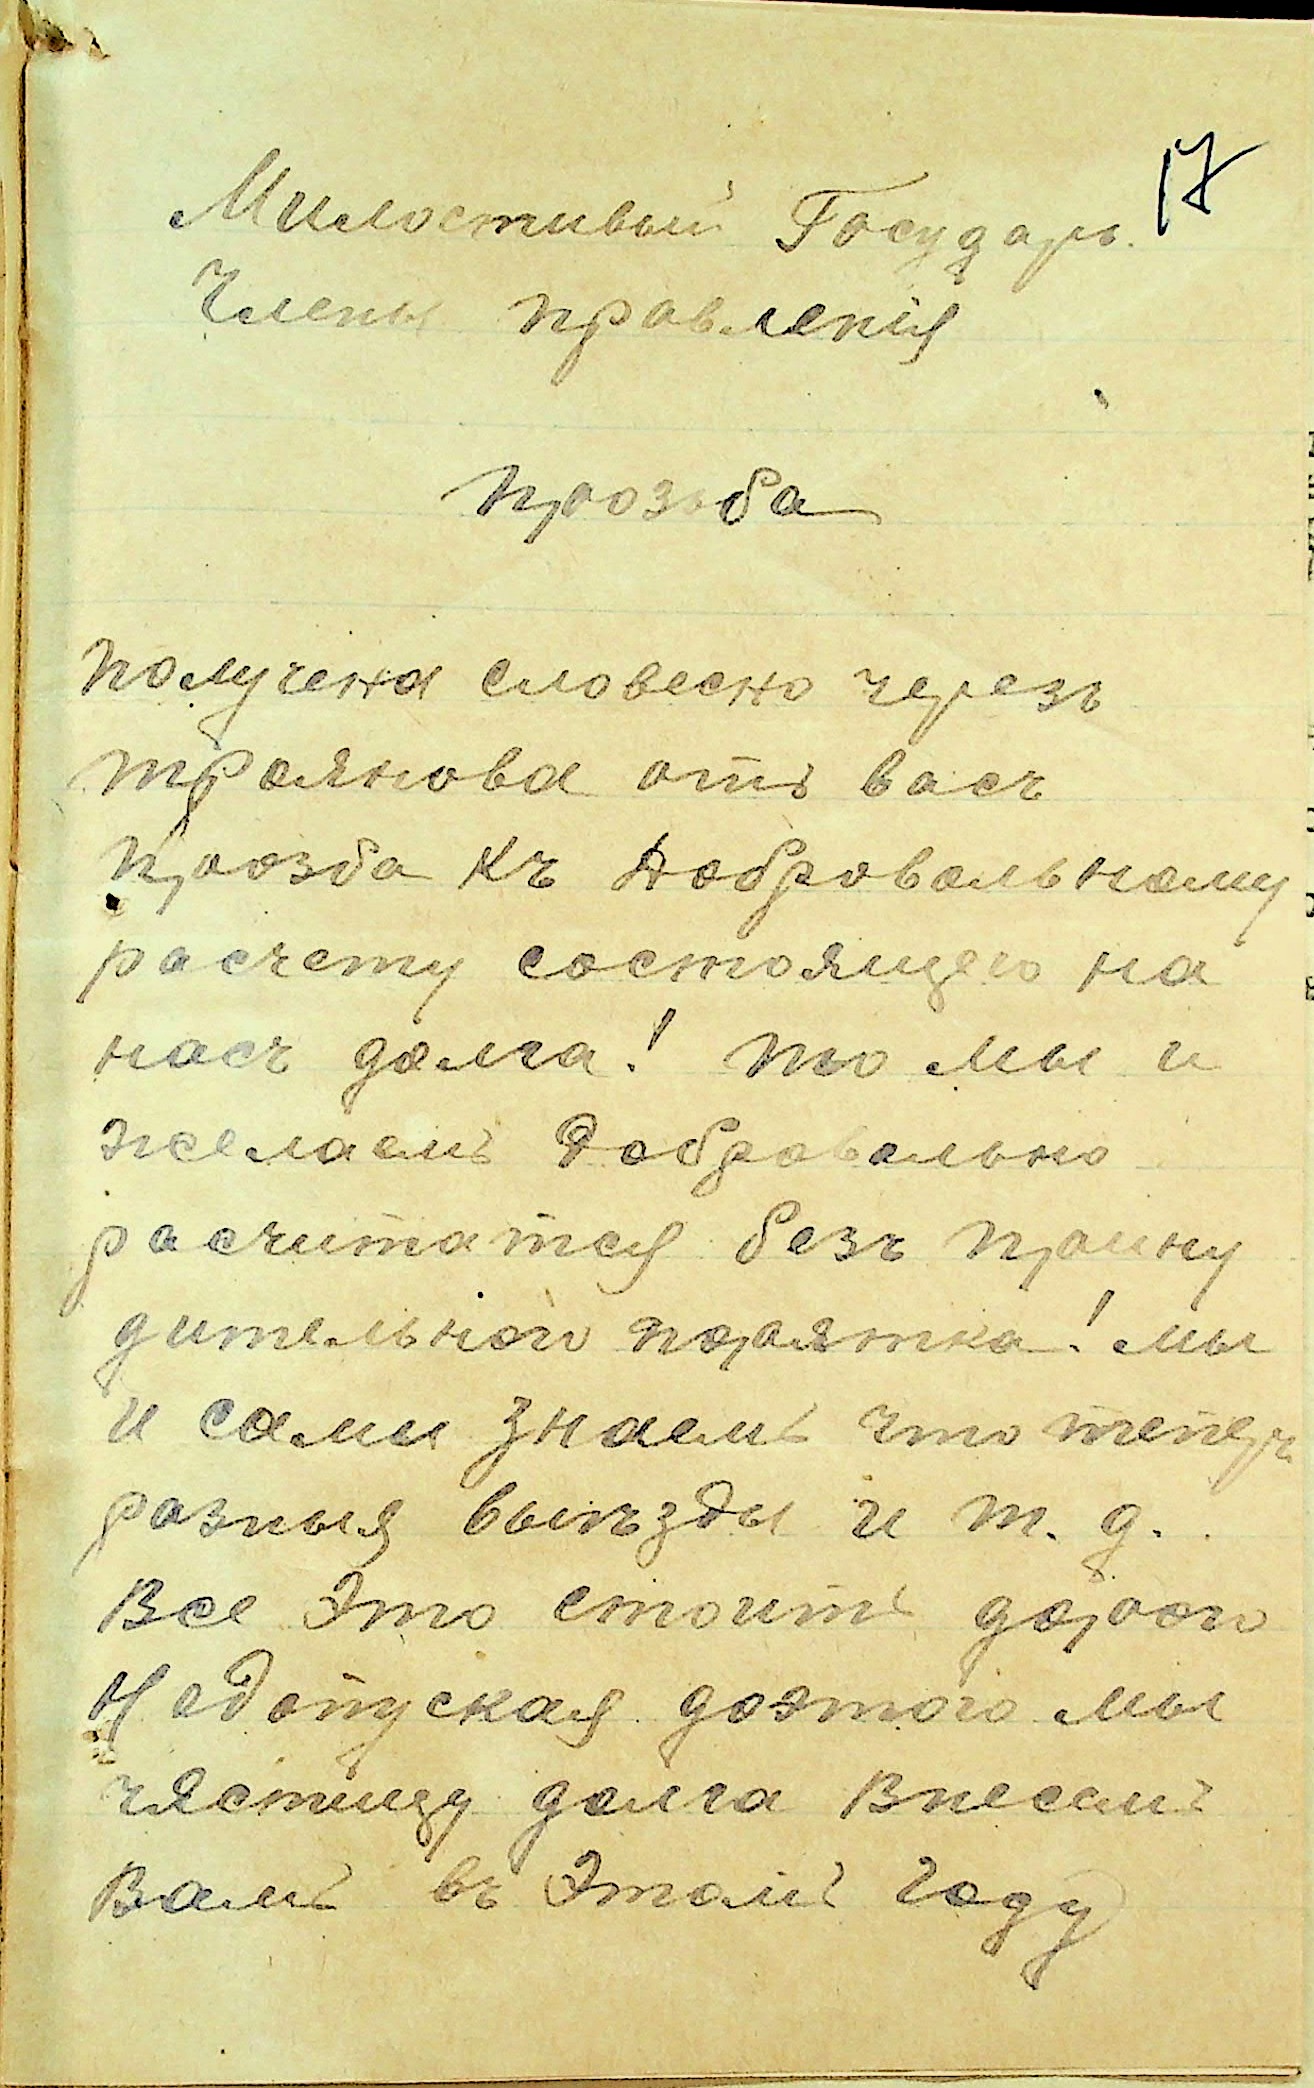 17
Милостивый Государь.
Члены правленія
прозьба
получена словесно черезъ
троянова отъ васъ
прозба къ добровольному
расчету состоящего на
насъ долга! то мы и
желаемъ добровольно
расчитатся безъ прину
дительного порятка! мы
и сами знаемъ что теперъ
разныя выѣзды и т. д.
Все Это стоитъ дорого
Недопуская доэтого мы
чястицу долга внесемъ
Вамъ въ Этомъ году